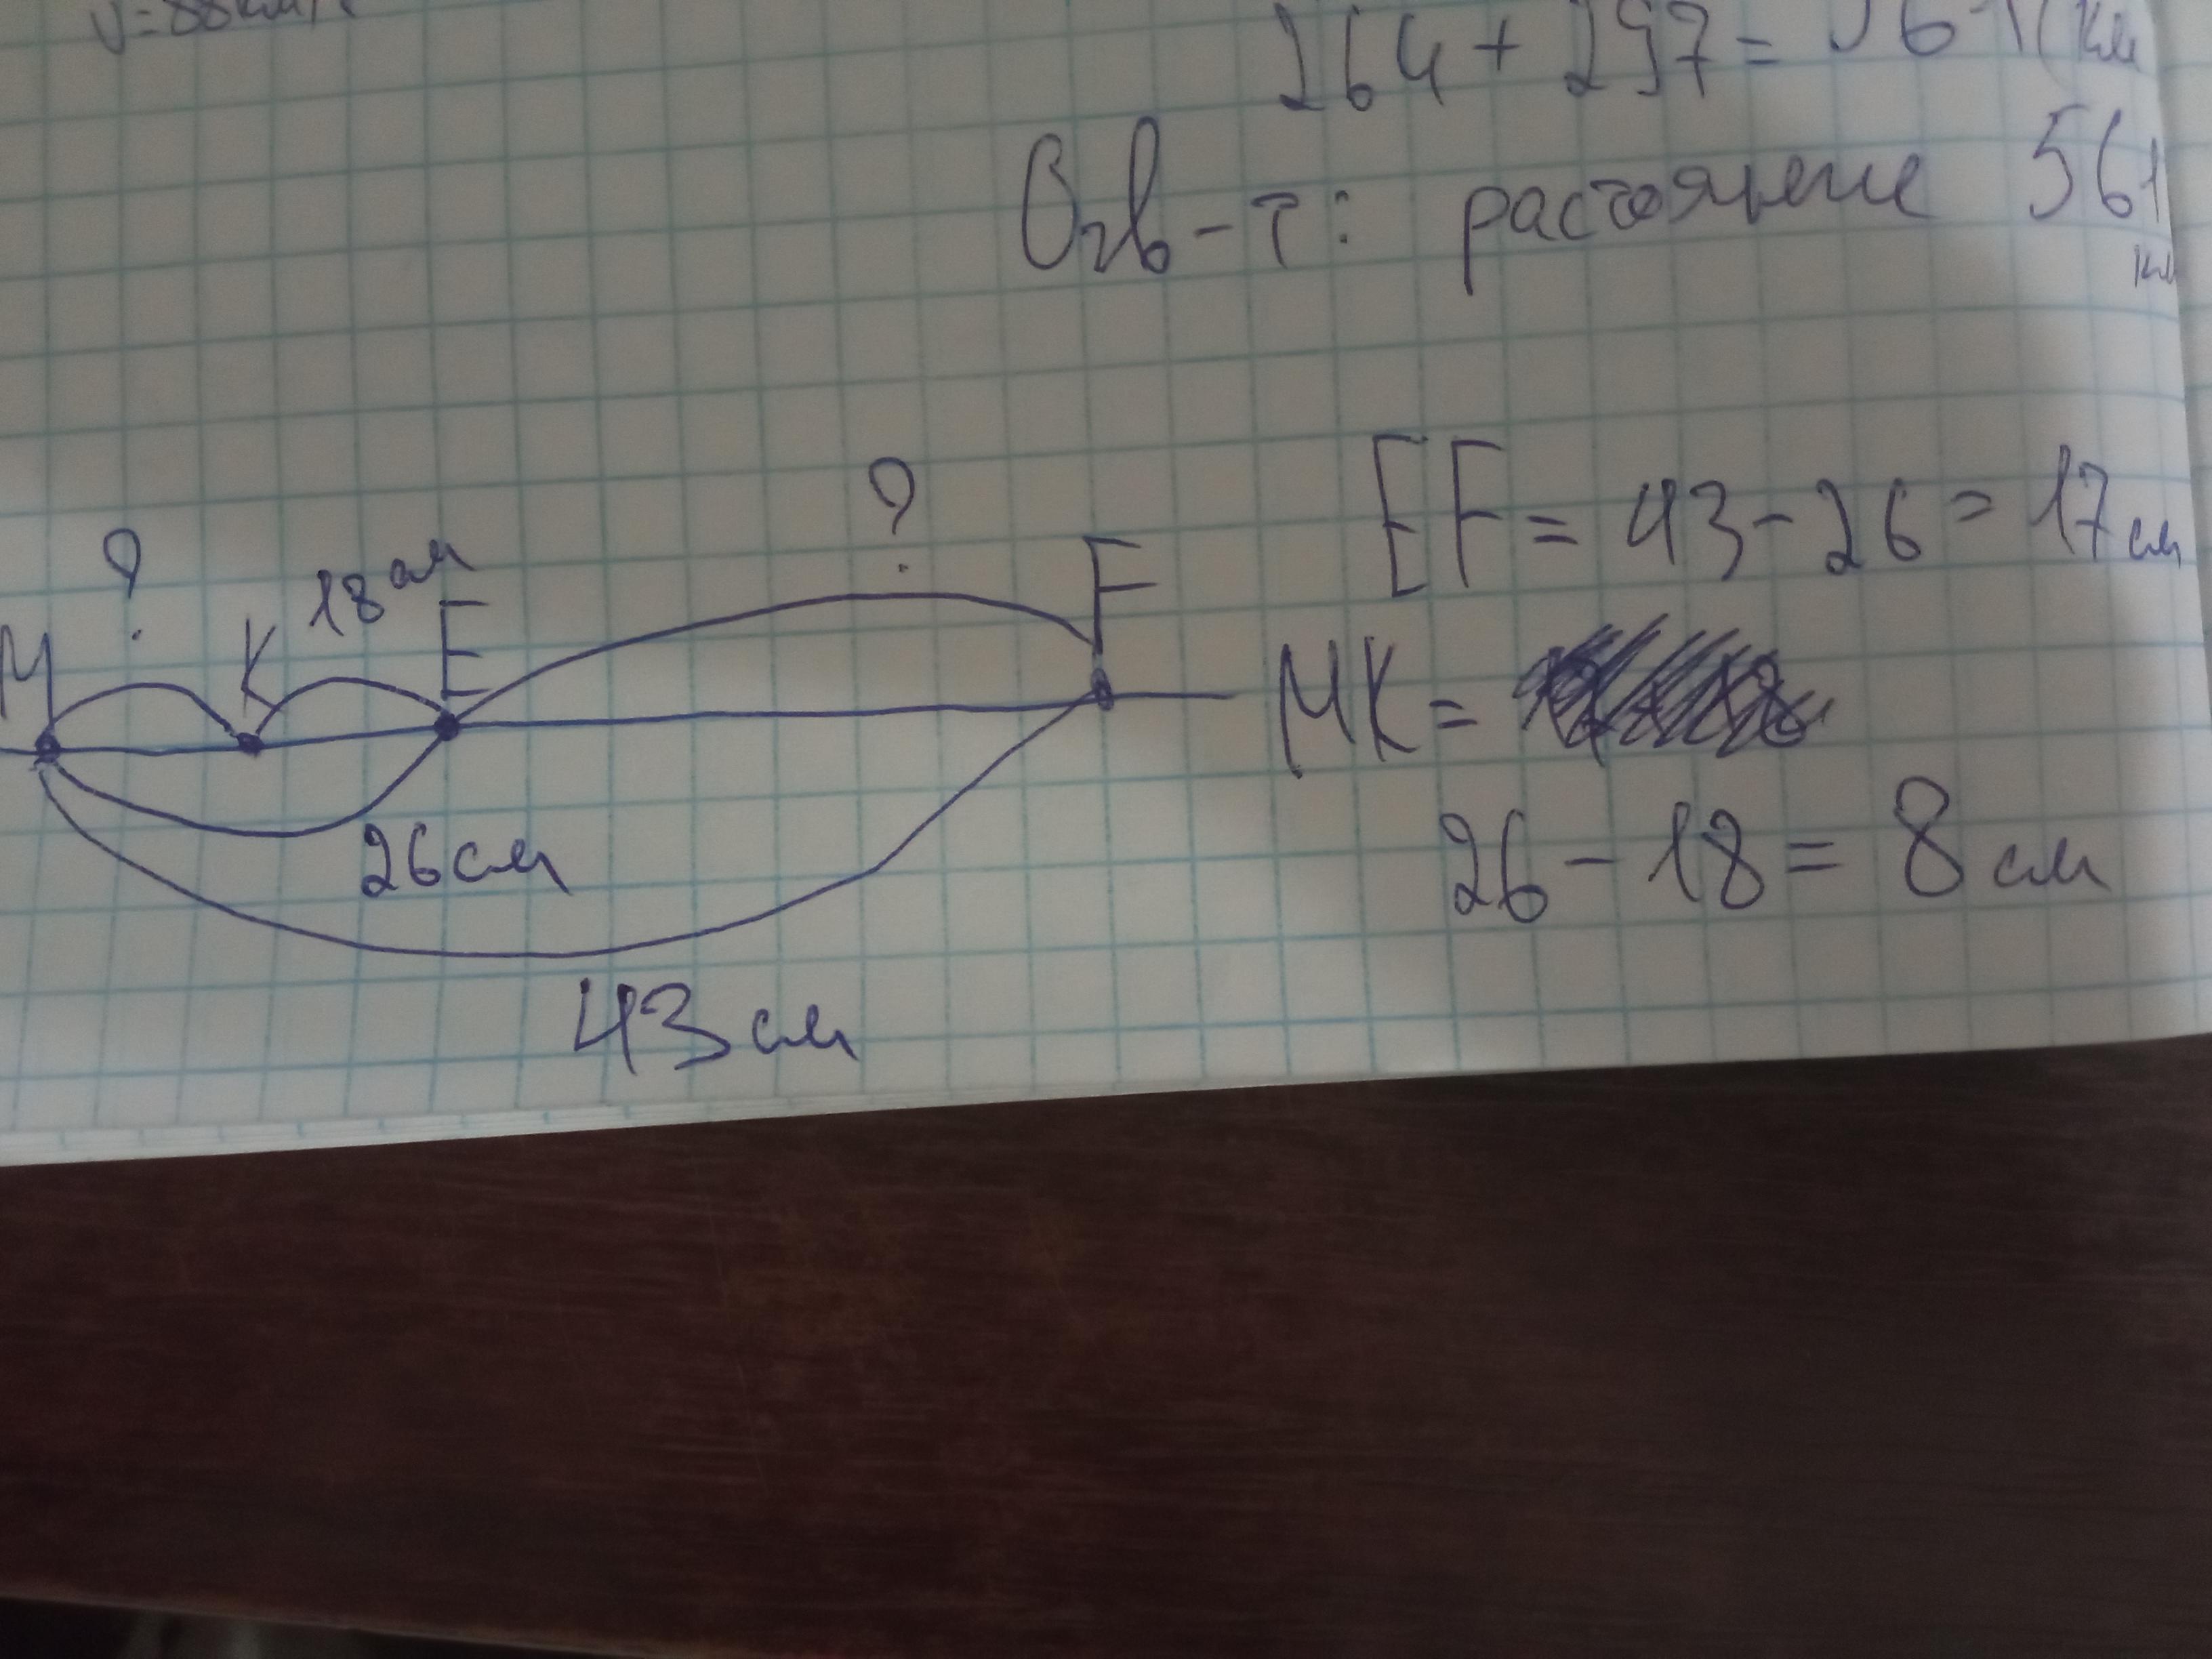 264 + 297 = 561 (км
Отв-т: растояние 561
км
? ?
M K 18 см E F
26 см
43 см
EF = 43 - 26 = 17 см
MK =
26 - 18 = 8 см